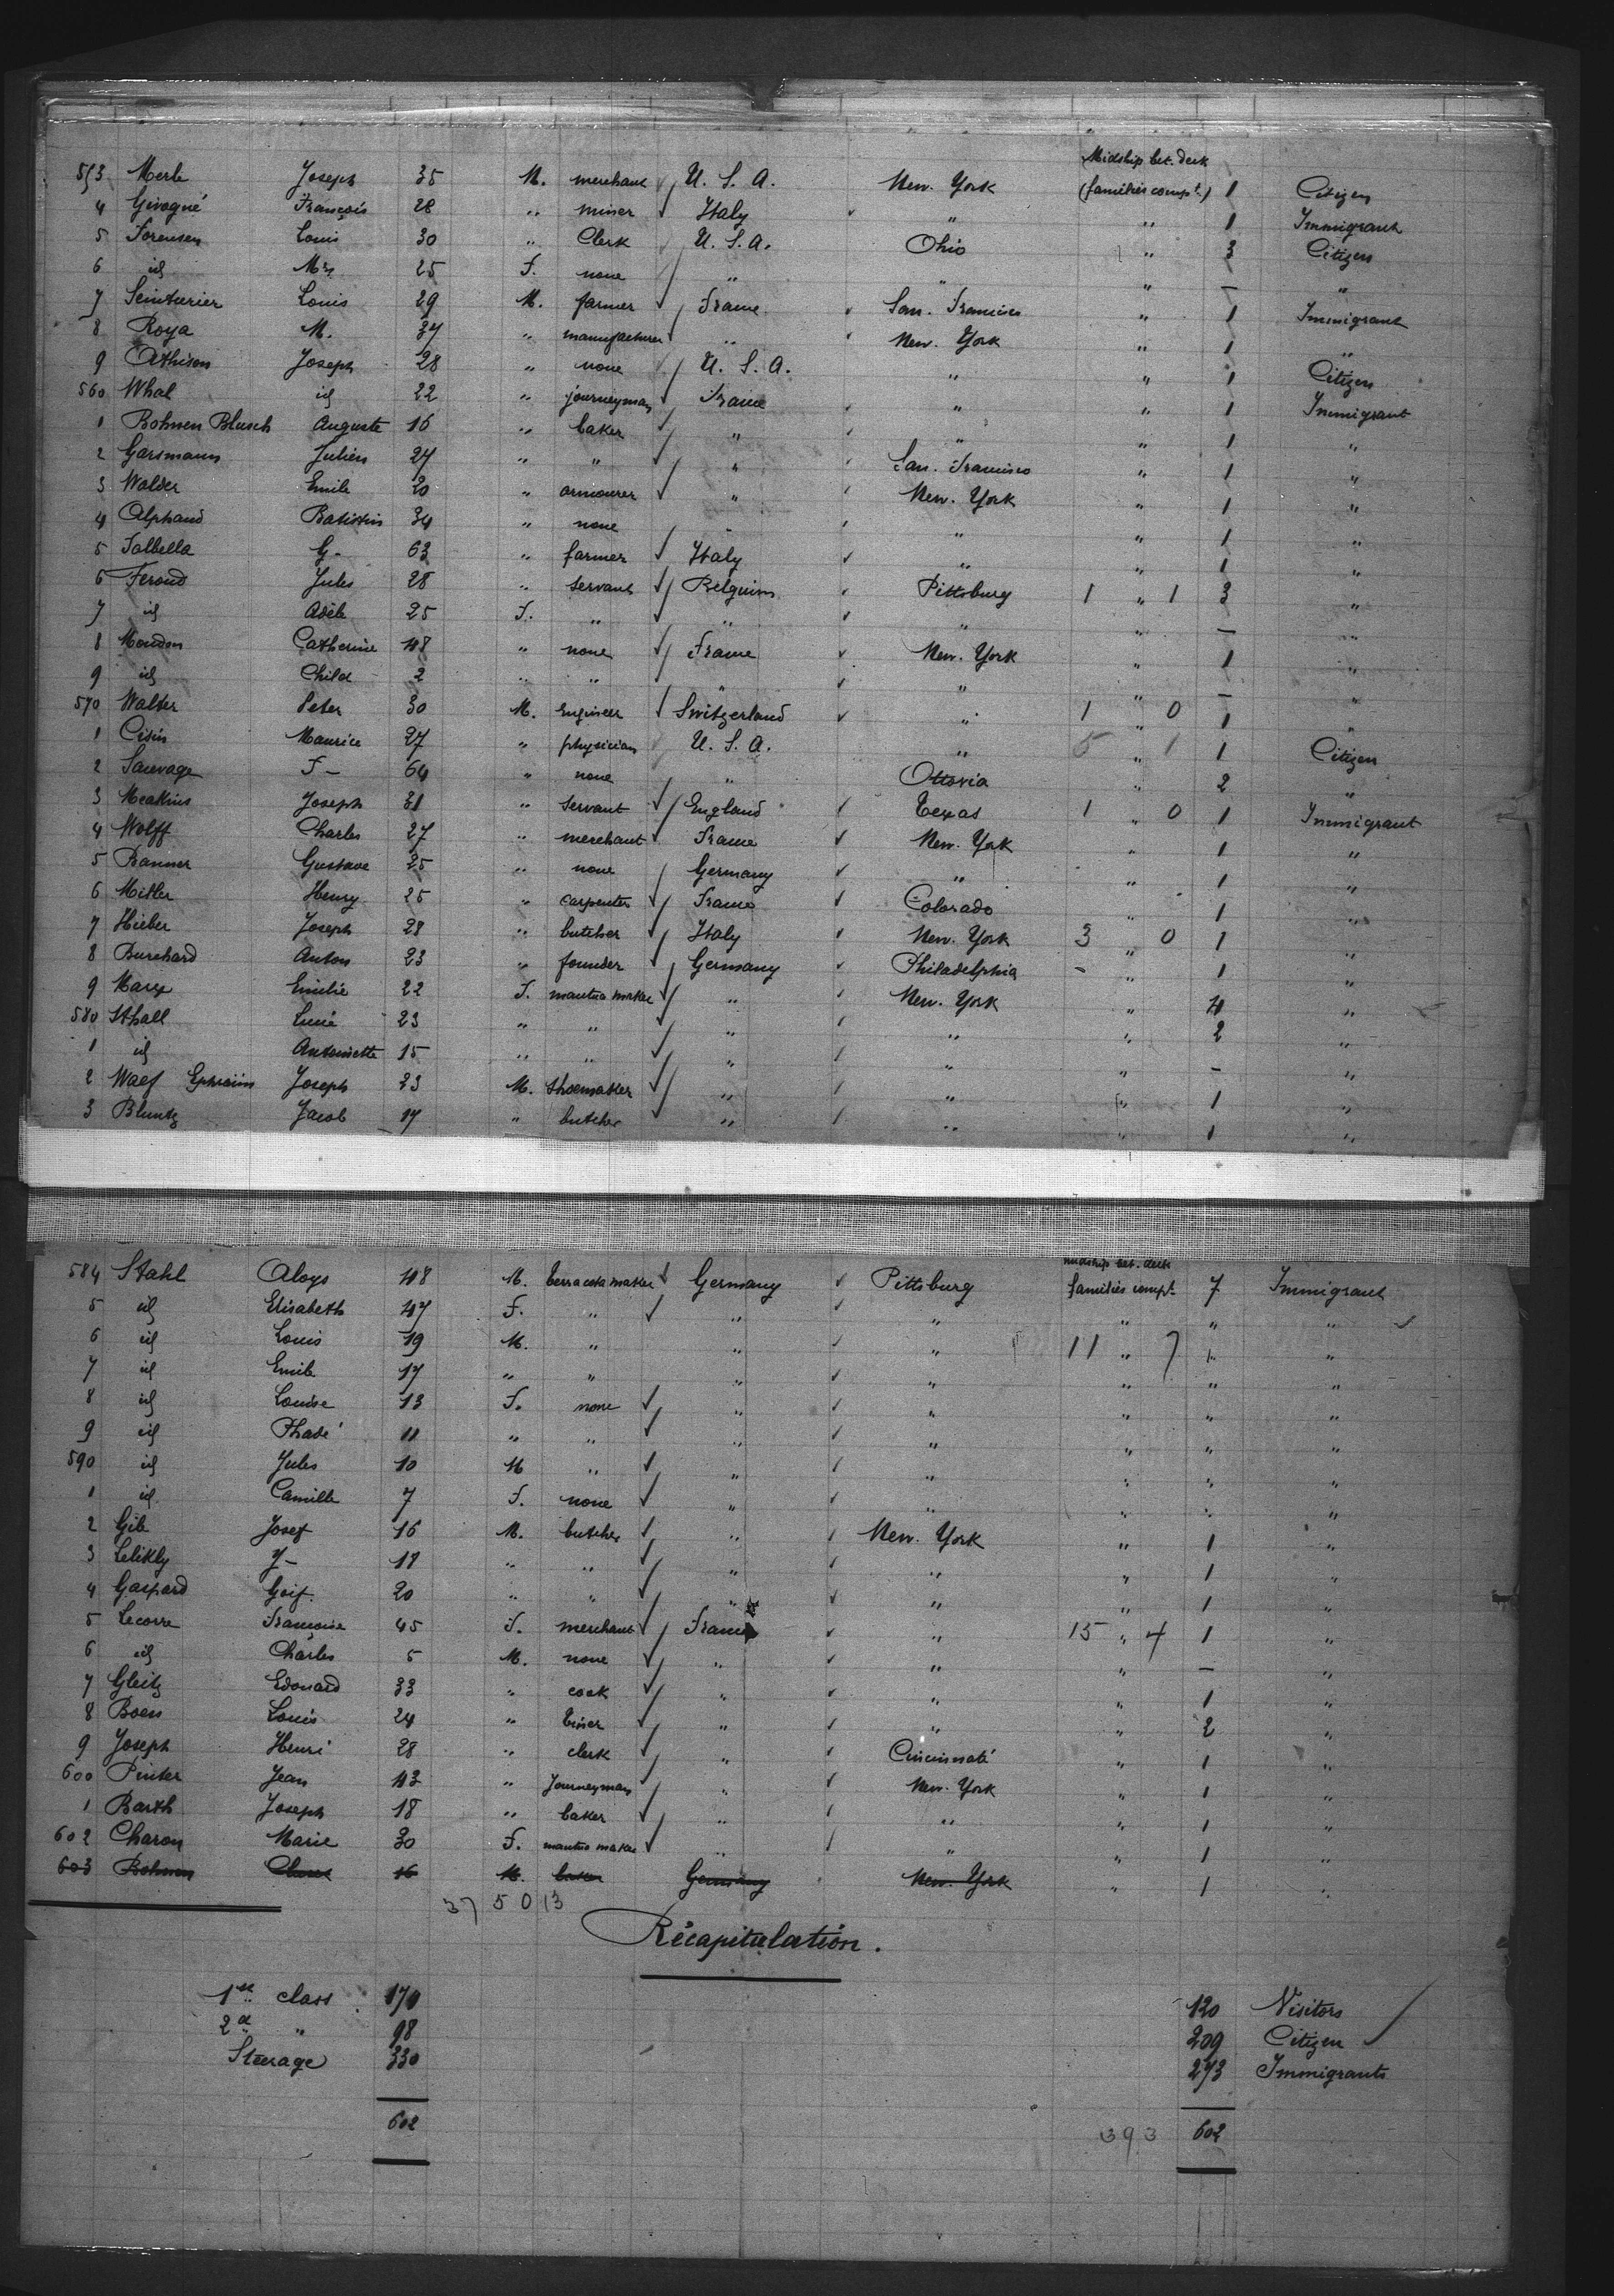 Midship bet. deck
553 Merle Joseph 35 M. merchant U. S. A. New. York (families compt.) 1 Citizen
4 Givogné François 28 " miner Italy " " 1 Immigrant
5 Sorensen Louis 30 " Clerk U. S. A. Ohio " 3 Citizen
6 id Mrs 25 F. none " " " — "
7 Seinturier Louis 29 M. farmer France San. Francisco " 1 Immigrant
8 Roya M. 37 " manufacturer " New. York " 1 "
9 Athison Joseph 28 " none U. S. A. " " 1 Citizen
560 Whal id 22 " journeyman France " " 1 Immigrant
1 Bohnen Blusch Auguste 16 " baker " " " 1 "
2 Garsmann Julien 27 " " " San. Francisco " 1 "
3 Walder Emile 20 " armourer " New. York " 1 "
4 Alphand Batistin 34 " none " " " 1 "
5 Salbella G- 63 " farmer Italy " " 1 "
6 Feroud Jules 28 " servant Belguim Pittsburg 1 " 1 3 "
7 id Adèle 25 F. " " " " — "
8 Moudon Catherine 48 " none France New. York " 1 "
9 id Child 2 " " " " " — "
570 Walter Peter 30 M. Engineer Switzerland " 1 " 0 1 "
1 Cisin Maurice 27 " physician U. S. A. " 5 " 1 1 Citizen
2 Sauvage F- 64 " none " Ottavia " 2 "
3 Meakins Joseph 31 " servant England Texas 1 " 0 1 Immigrant
4 Wolff Charles 27 " merchant France New. York " 1 "
5 Ranner Gustave 25 " none Germany " " 1 "
6 Mitler Henry 25 " carpenter France Colorado " 1 "
7 Hieber Joseph 28 " butcher Italy New. York 3 " 0 1 "
8 Burchard Anton 23 " founder Germany Philadelphia " 1 "
9 Marx Emilie 22 F. mantua maker " New. York " 4 "
580 Sthall Lucie 23 " " " " " 2 "
1 id Antoinette 15 " " " " " - "
2 Waef Ephraïm Joseph 23 M. Shoemaker " " " 1 "
3 Bluntz Jacob 17 " butcher " " " 1 "
midship bet. deck
584 Stahl Aloys 48 M. terra cota maker Germany Pittsburg families compt. 7 Immigrant
5 id Elisabeth 47 F. " " " " " "
6 id Louis 19 M. " " " 11 " 7 " "
7 id Emile 17 " " " " " " "
8 id Louise 13 F. none " " " " "
9 id Thadé 11 " " " " " " "
590 id Jules 10 M " " " " " "
1 id Camille 7 F. none " " " " "
2 Gib Josef 16 M. butcher " New. York " 1 "
3 Lelikly J- 18 " " " " " 1 "
4 Gaspard Goif. 20 " " " " " 1 "
5 Lecorre Françoise 45 F. merchant France " 15 " 4 1 "
6 id Charles 5 M. none " " " — "
7 Gleitz Edouard 33 " cook " " " 1 "
8 Boen Louis 24 " tiner " " " 2 "
9 Joseph Henri 28 " clerk " Cincinnati " 1 "
600 Pinter Jean 43 " Journeyman " New. York " 1 "
1 Barth Joseph 18 " baker " " " 1 "
602 Charon Marie 30 F. mantua maker " " " 1 "
603 Bohnen 16 M. baker Germany New. York " 1 "
37 50 13
Récapitulation.
1st class 170 120 Visitors
2d " 98 209 Citizen
Steerage 330 273 Immigrants
602 393 602